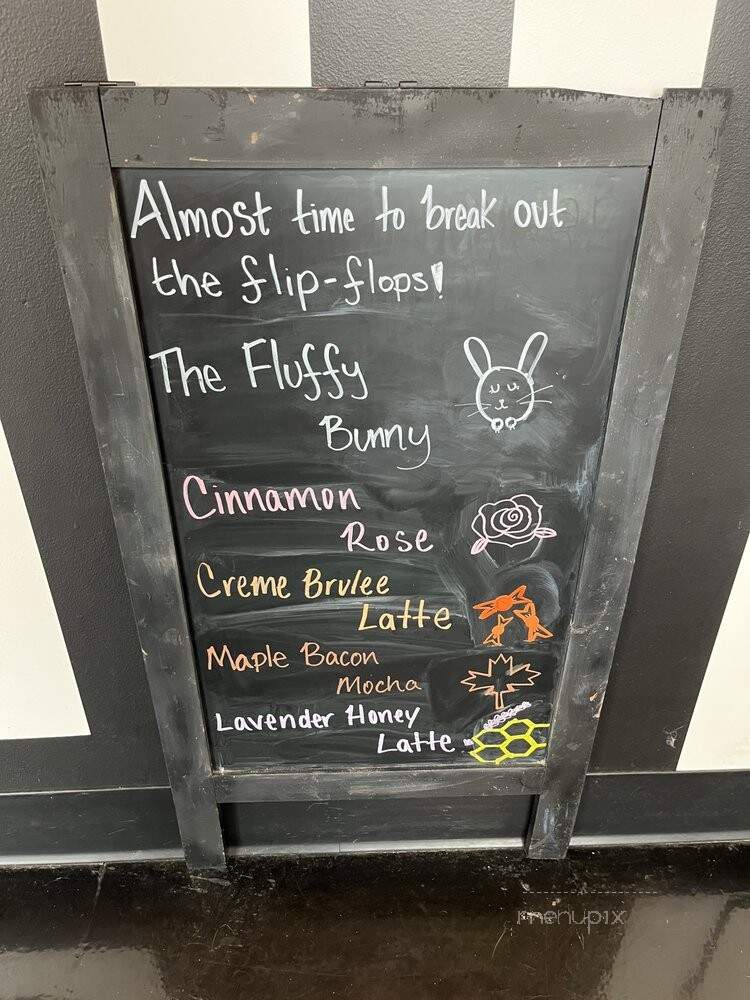 Almost time to break out
the flip-flops!
The Fluffy
Bunny
Cinnamon
Rose
Creme Brulee
Latte
Maple Bacon
Mocha
Lavender Honey
Latte
menupix